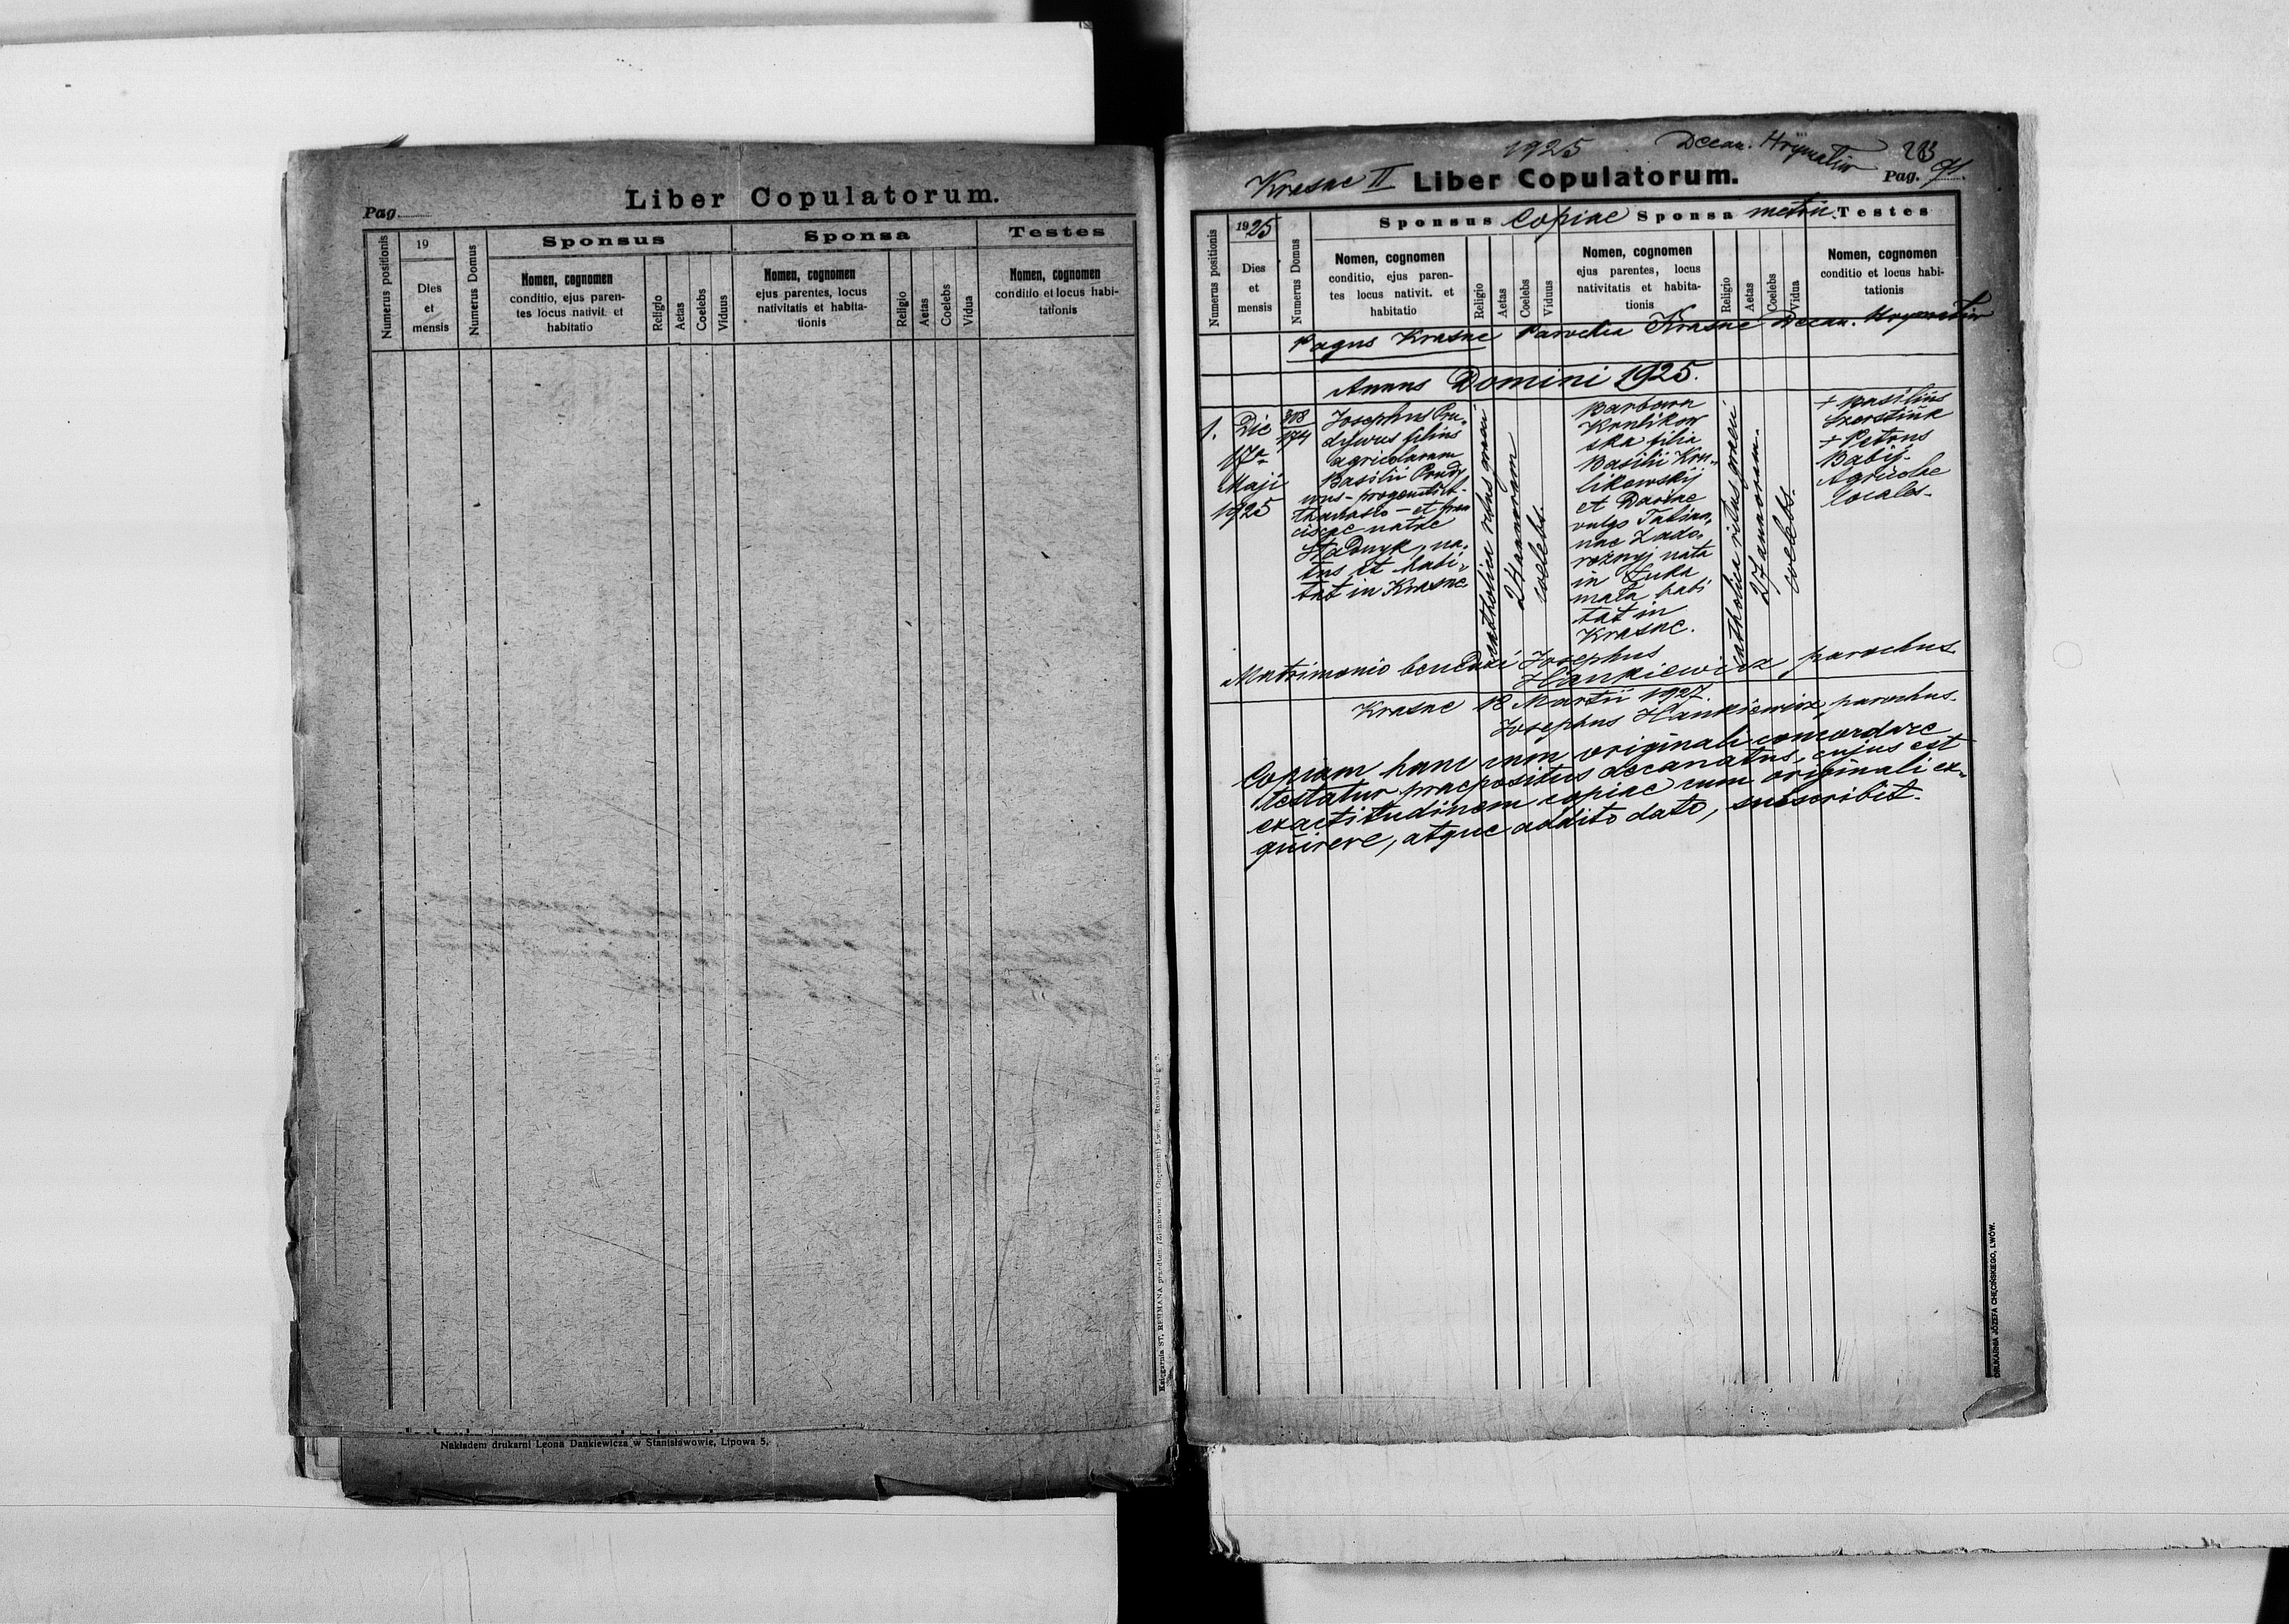 Liber Copulatorum.
Pag.
Numerus positionis
19
Dies
et
mensis
Numerus Domus
Sponsus
Nomen, cognomen
conditio, ejus paren-
tes locus nativit. et
habitatio
Religio
Aetas
Coelebs
Viduus
Sponsa
Nomen, cognomen
ejus parentes, locus
nativitatis et habita-
tionis
Religio
Aetas
Coelebs
Vidua
Testes
Nomen, cognomen
conditio et locus habi-
tationis
Nakładem drukarni Leona Dankiewicza w Stanisławowie, Lipowa 5.
1925 Decan. Hrymaliw
Krasne II Liber Copulatorum. Pag. 91.
Numerus positionis
1925
Dies
et
mensis
Numerus Domus
Sponsus Copiae Sponsa metric. Testes
Nomen, cognomen
conditio, ejus paren-
tes locus nativit. et
habitatio
Religio
Aetas
Coelebs
Viduus
Nomen, cognomen
ejus parentes, locus
nativitatis et habita-
tionis
Religio
Aetas
Coelebs
Vidua
Nomen, cognomen
conditio et locus habi-
tationis
Pagus Krasne Parochia Krasne Decan. Hrymaliw
Annus Domini 1925.
1.
Die
17a
Maji
1925
308
174
Josephus Pru-
dywus filius
agricolarum
Basilii Prudy
wus - 
et fran
ciscae natae
Stadnyk, na-
tus et habi-
tat in Krasne
catholica ritus graeci
24 annorum
coelebs.
Barbara
Krulikow
ska filia
Basilii Kru-
likowskij
et Dariae
vulgo Tatian-
nae Zado-
rożnyj nata
in Łuka
mała habi
tat in
Krasne.
catholica ritus graeci
27 annorum.
coelebs.
+ Basilius
+ Petrus
Babij-
Agricolae
locales-
Matrimonio benedixi Josephus
Hankiewicz, parochus
Krasne 18 Martii 1927.
Josephus Hankiewicz, parochus.
Copiam hanc cum originali concordare
testatur praepositus decanatus, cujus est
exactitudinem copiae cum originali ex-
quirere, atque addito dato, subscribit.
DRUKARNIA JÓZEFA CHĘCIŃSKIEGO, LWÓW.